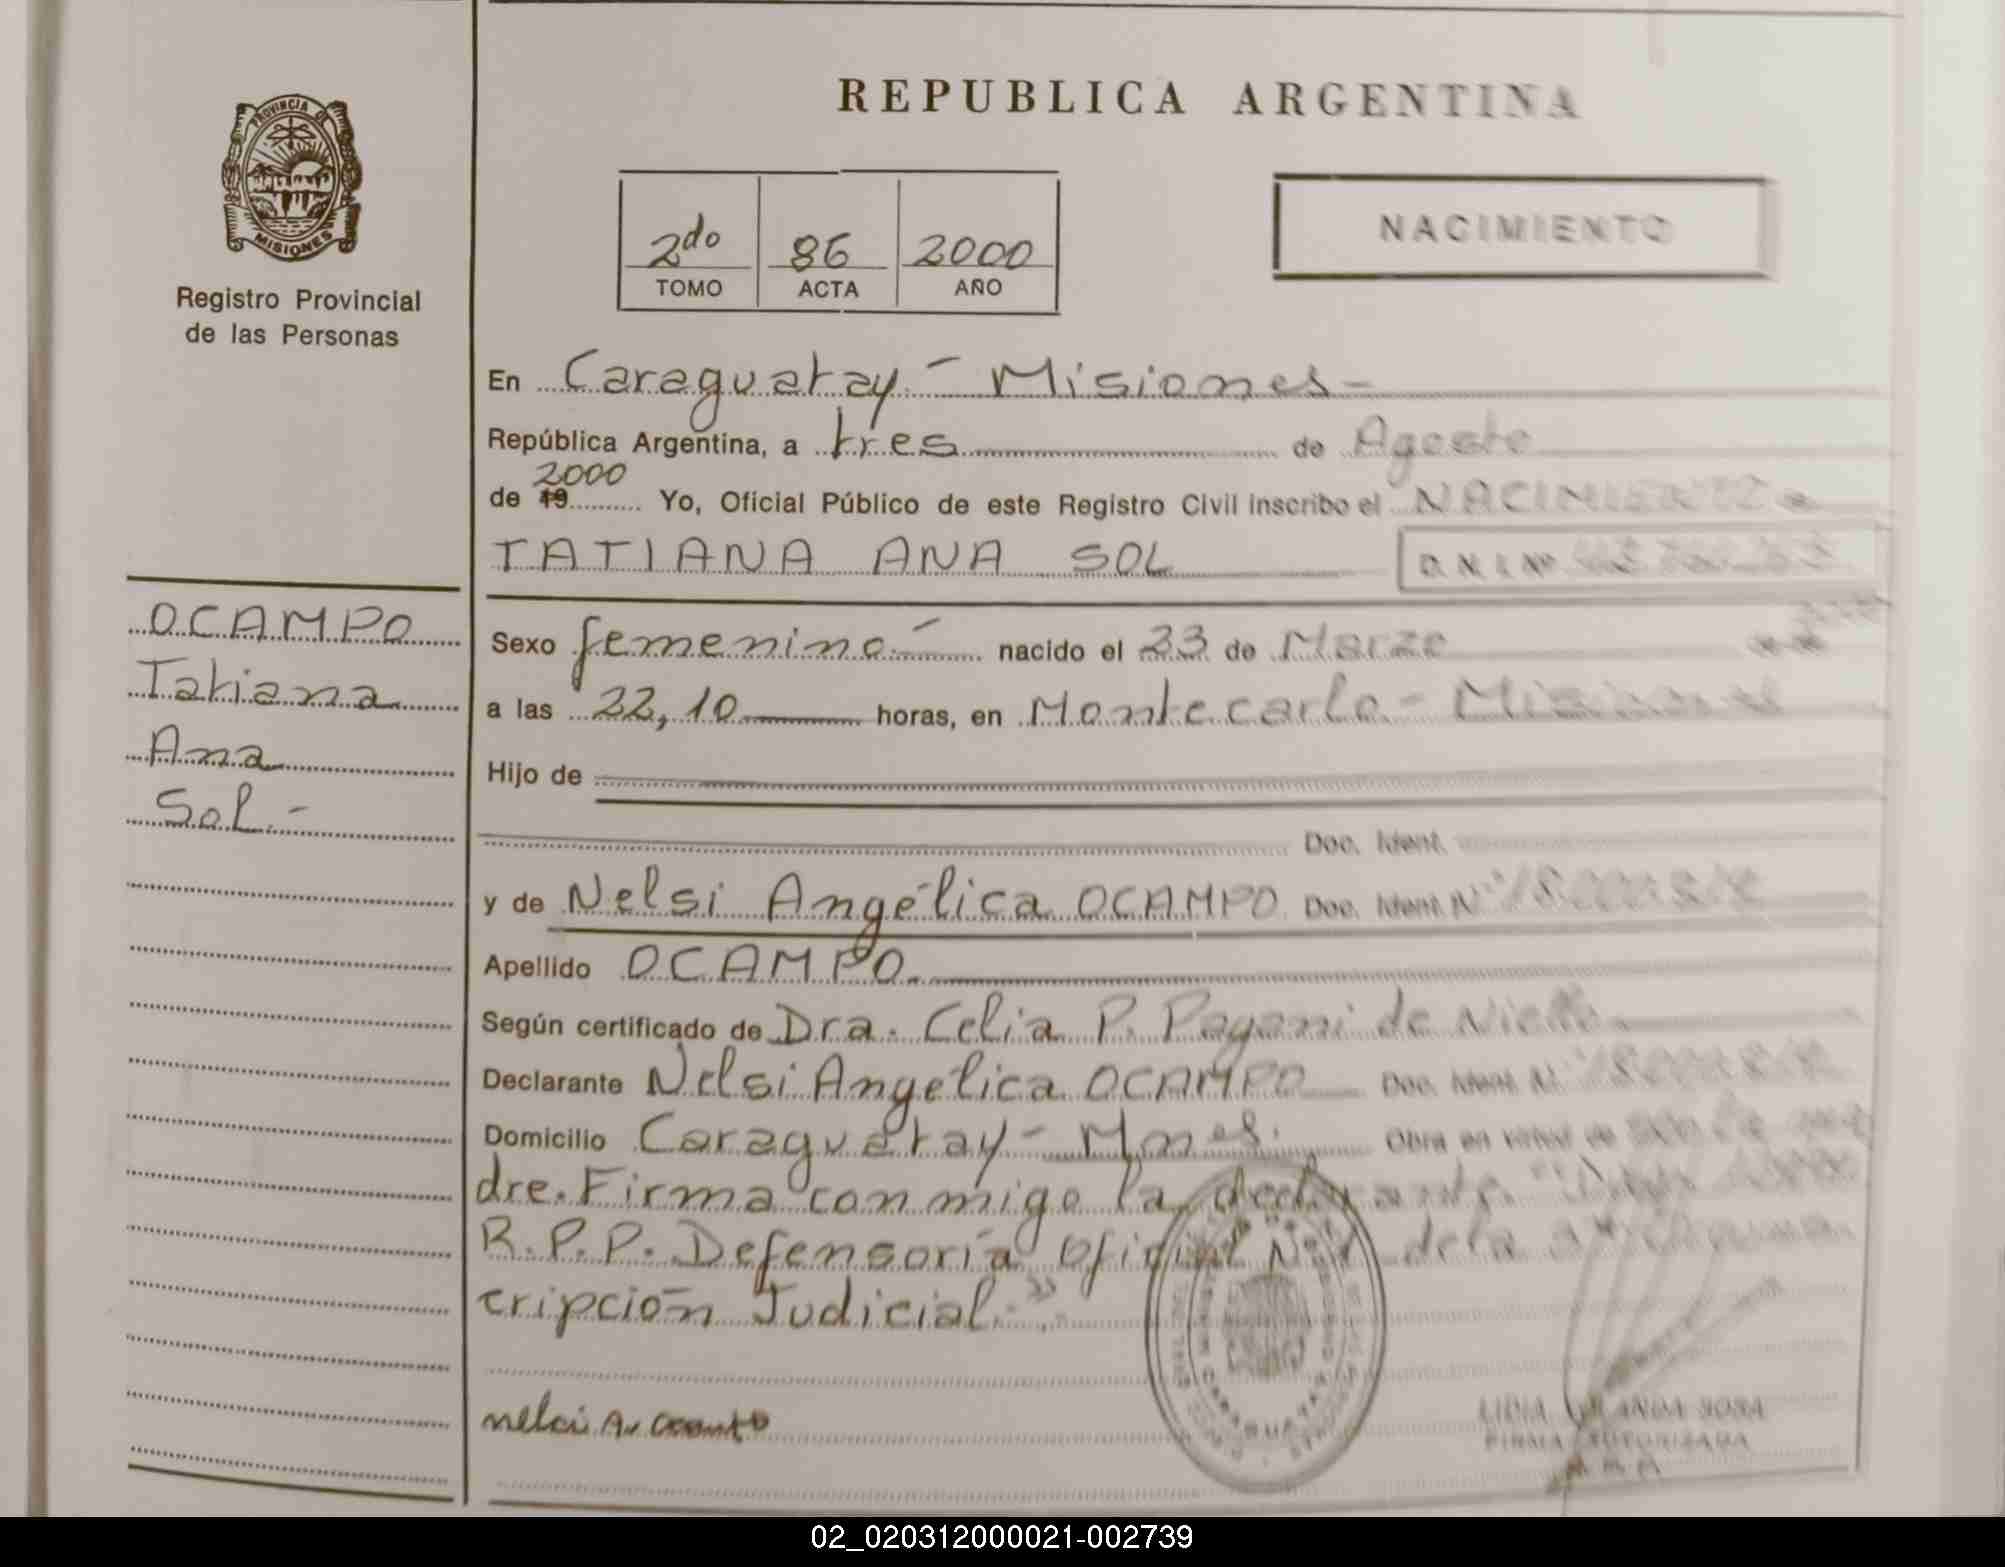 PROVINCIA DE
MISIONES
Registro Provincial
de las Personas
REPUBLICA ARGENTINA
2do 86 2000
TOMO ACTA AÑO
NACIMIENTO
En Caraguatay - Misiones -
República Argentina, a tres de Agosto
2000
de 19 Yo, Oficial Público de este Registro Civil inscribo el NACIMIENTO
TATIANA ANA SOL D.N.I Nº
OCAMPO
Tatiana
Ana
Sol.-
Sexo femenino - nacido el 23 de Marzo
a las 22,10 horas, en Montecarlo - Misiones
Hijo de
Doc. Ident.
y de Nelsi Angélica OCAMPO Doc. Ident. Nº
Apellido OCAMPO.
Según certificado de Dra. Celia P. de
Declarante Nelsi Angélica OCAMPO Doc. Ident. Nº
Domicilio Caraguatay - Mnes. Obra en virtud de
dre. Firma conmigo la declarante.
R.P.P. Defensoría Oficial de la
cripción Judicial."
FIRMA AUTORIZADA
02_020312000021-002739